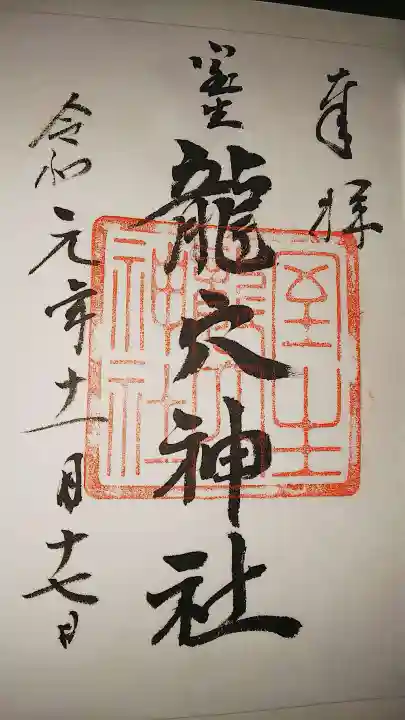 奉拝
室生
龍穴神社
室生龍穴神社
令和元年十一月十七日